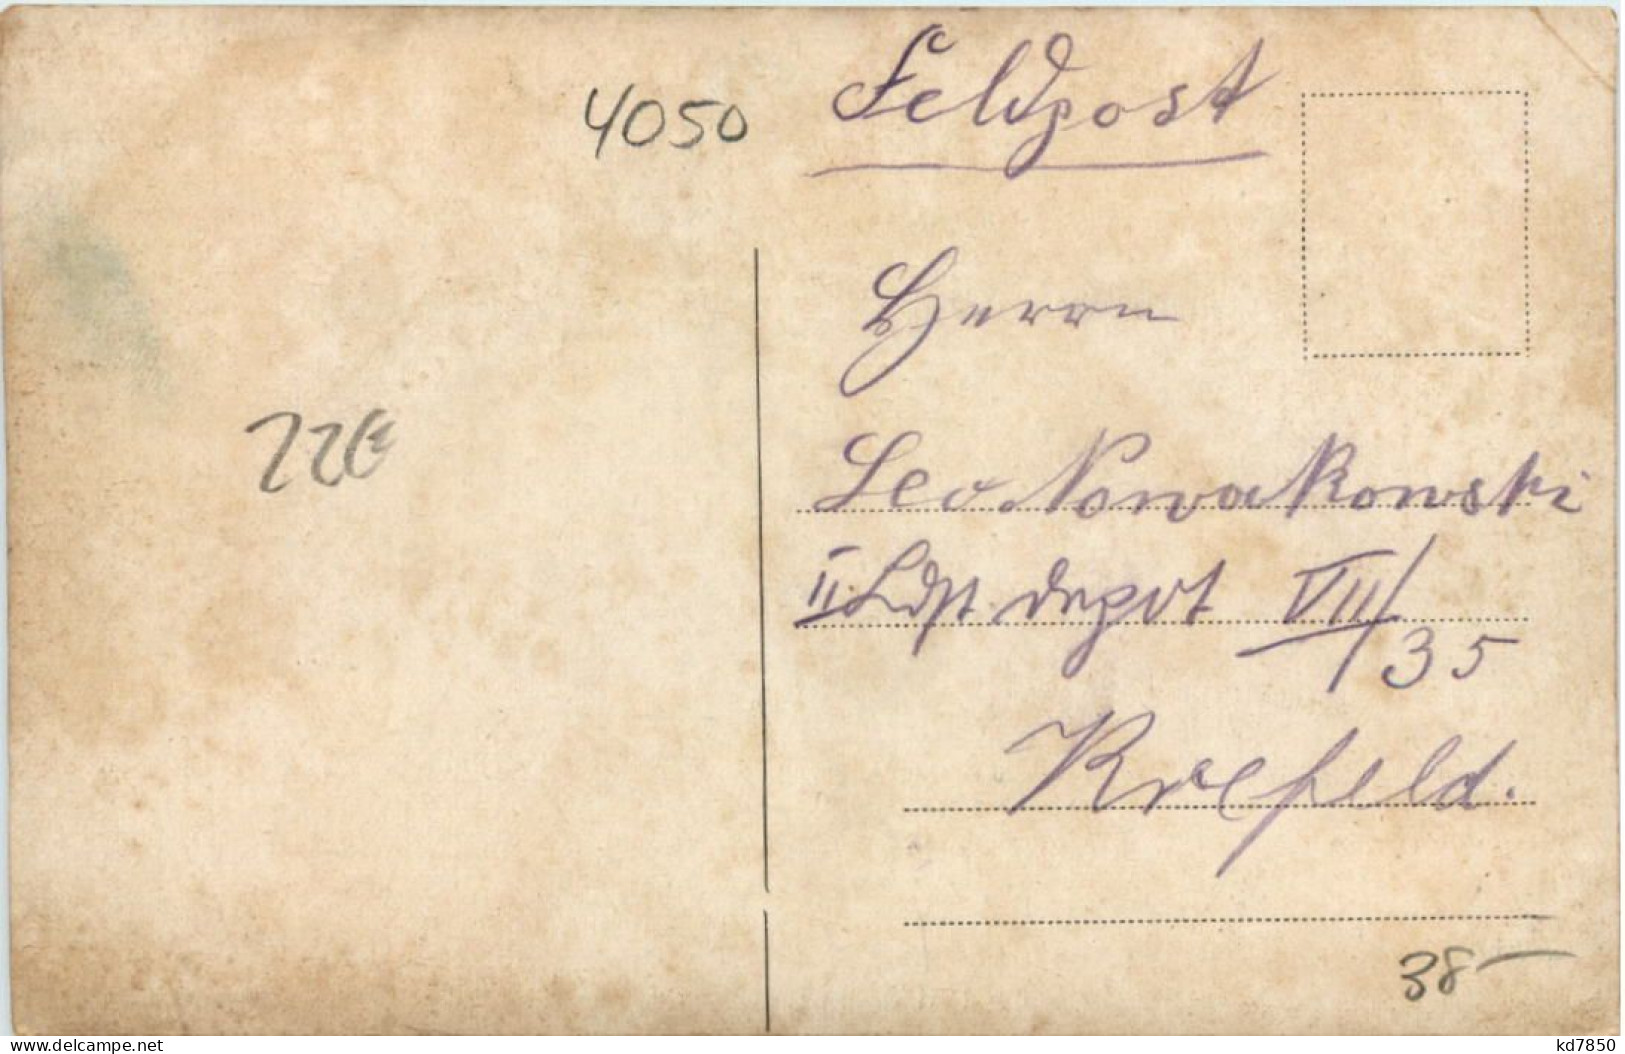 4050
Feldpost
Herrn
22E
Leo Nowakowski
II. Ldst. depot VII/35
Krefeld.
38-
www.delcampe.net
kd7850